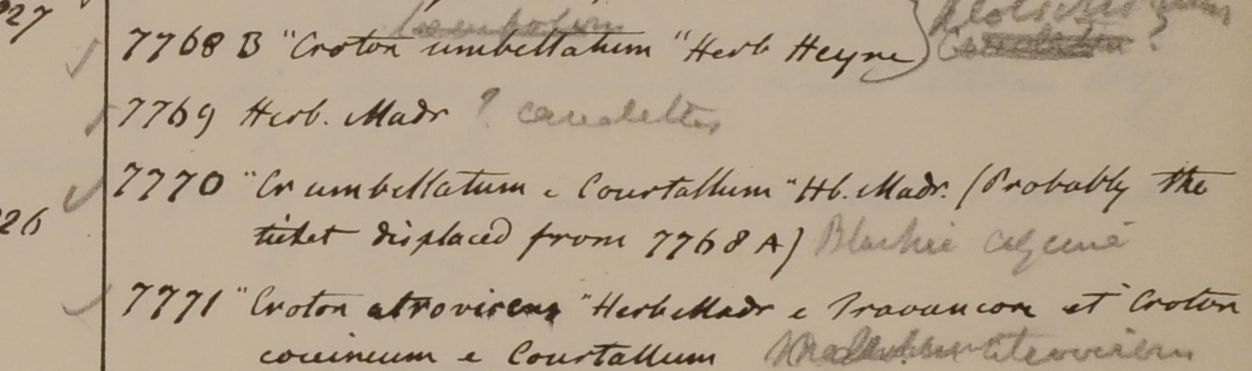 27
7768 B "Croton umbellatum" Herb Heyne
7769 Herb. Madr ?
7770 "Cr umbellatum e Courtallum" Hb. Madr. (Probably the
26
ticket displaced from 7768 A)
7771 "Croton atrovirens" Herb Madr e Travancor et Croton
coccineum e Courtallum